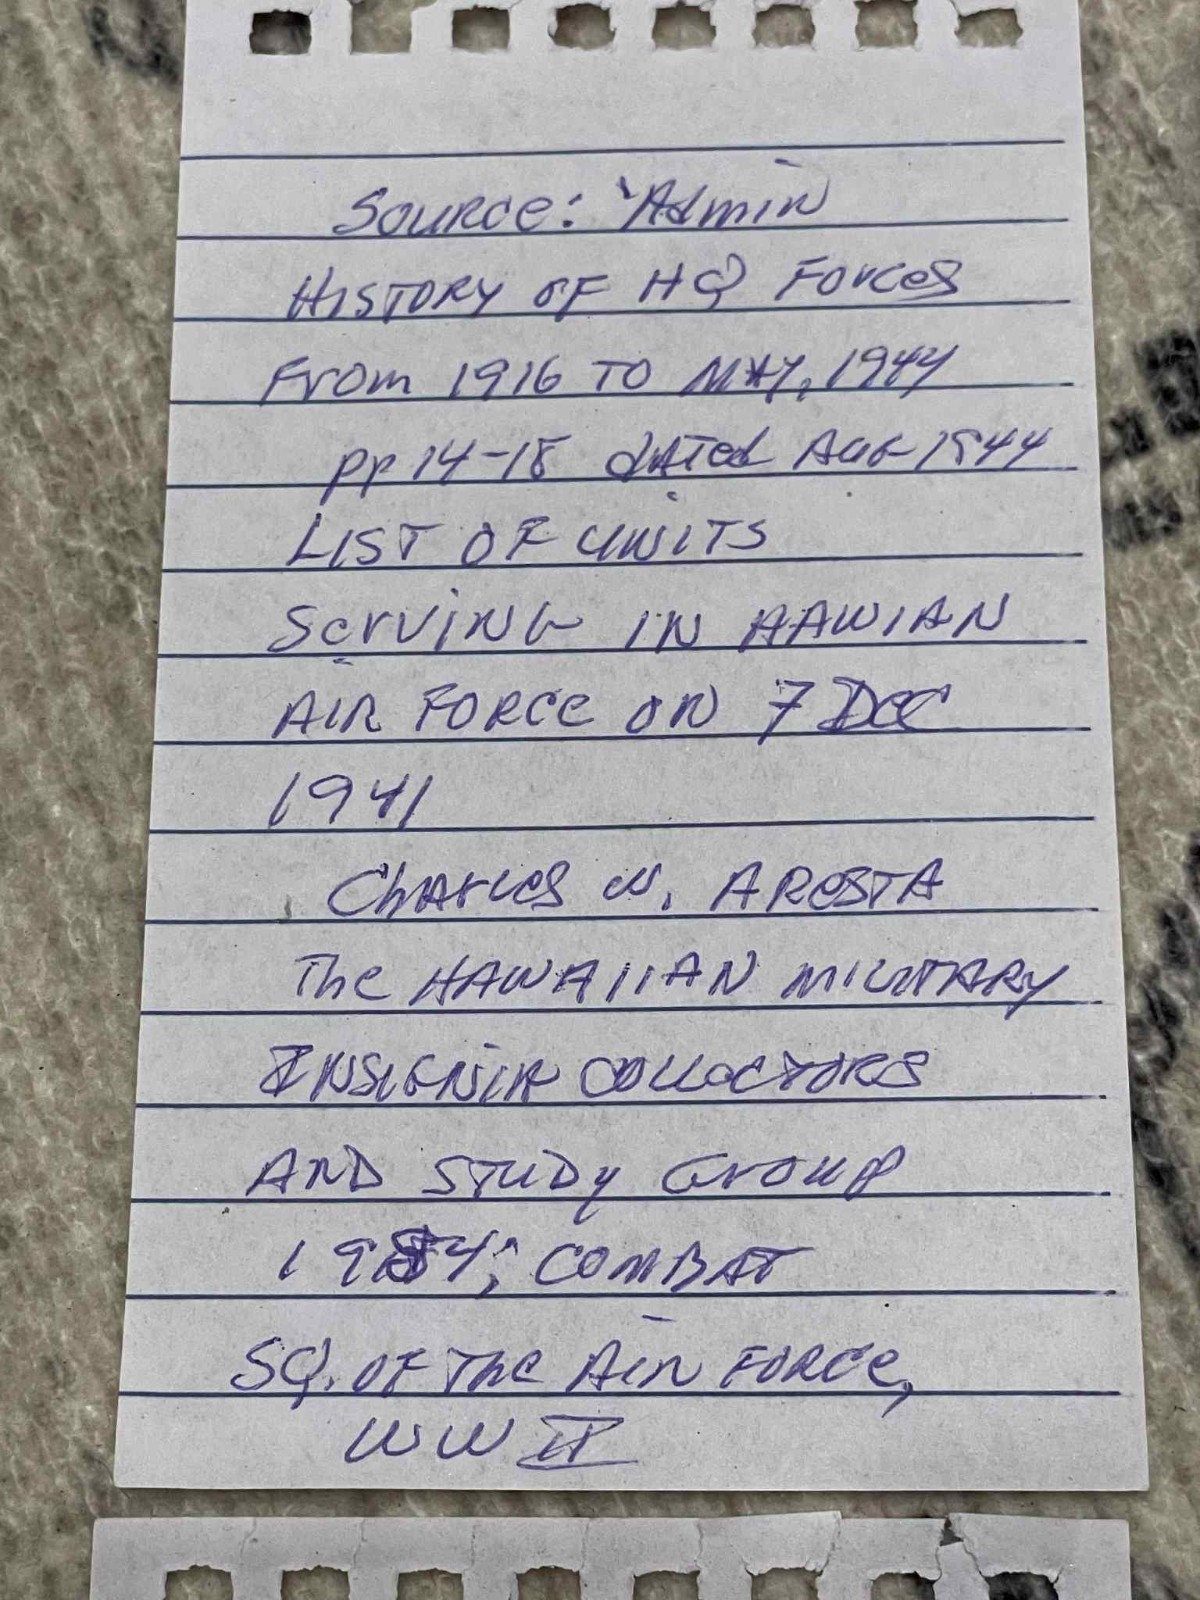 Source: 'Admin
HISTORY OF HQ Forces
From 1916 TO MAY, 1944
pp 14-18 dATed AUG 1944
LIST OF UNITS
SerVING IN HAWIAN
AIR FORCE ON 7 DEC
1941
CHArLeS W. ARESTA
The HAWAIIAN MILITARY
INSIGNIA COLLECTORS
AND STUDy Group
1984; COMBAT
SQ. OF The AIR FORCE,
WW II